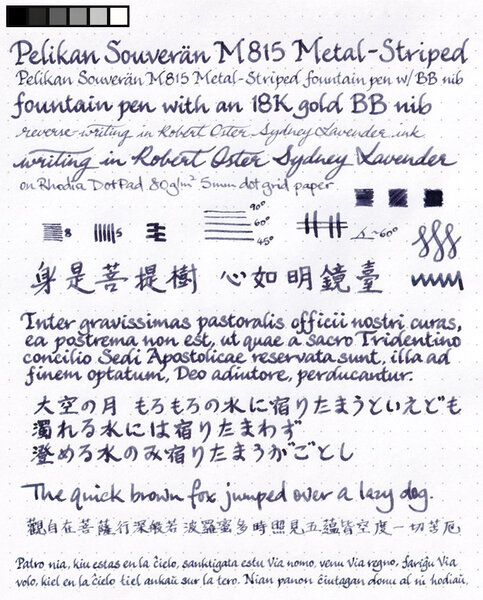 Pelikan Souverän M815 Metal-Striped
Pelikan Souverän M815 Metal-Striped fountain pen w/ BB nib
fountain pen with an 18K gold BB nib
reverse writing in Robert Oster Sydney Lavender ink
writing in Robert Oster Sydney Lavender
on Rhodia DotPad 80g/m² 5mm dot grid paper
8 5 90° 60° 45° ~60°
身是菩提樹 心如明鏡臺
Inter gravissimas pastoralis officii nostri curas,
ea postrema non est, ut quae a sacro Tridentino
concilio Sedi Apostolicae reservata sunt, illa ad
finem optatum, Deo adiutore, perducantur.
大空の月 もろもろの水に宿りたまうといえども
濁れる水には宿りたまわず
澄める水のみ宿りたまうがごとし
The quick brown fox jumped over a lazy dog.
觀自在菩薩行深般若波羅蜜多時照見五蘊皆空度一切苦厄
Patro nia, kiu estas en la ĉielo, sanktigata estu Via nomo, venu Via regno, fariĝu Via
volo, kiel en la ĉielo tiel ankaŭ sur la tero. Nian panon ĉiutagan donu al ni hodiaŭ,